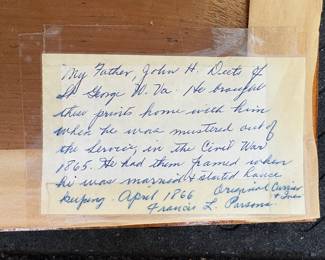 My Father, John H. Diets of
St George W. Va. He brought
these prints home with him
when he was mustered out of
the Service, in the Civil War
1865. He had them framed when
he was married & started house
keeping. April 1866 Original Currier
& Ives
Francis L. Parsons.